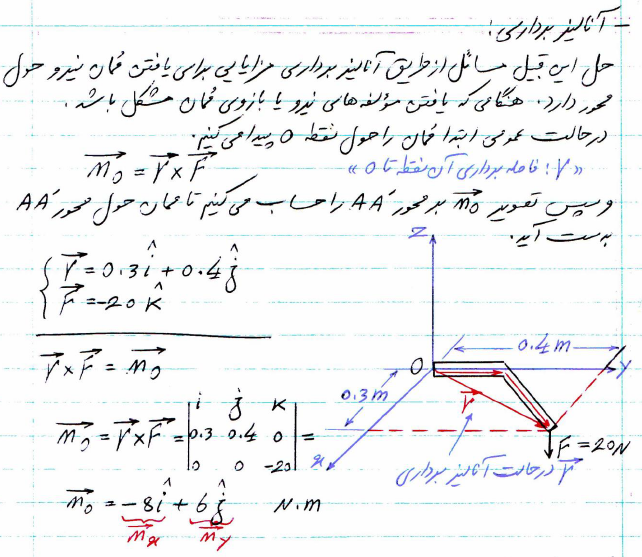 - آنالیز برداری:
حل این قبیل مسائل از طریق آنالیز برداری مزایایی برای یافتن ممان نیرو حول
محور دارد. هنگامی که یافتن مؤلفه‌های نیرو یا بازوی ممان مشکل باشد.
در حالت عمومی ابتدا ممان را حول نقطه O پیدا می‌کنیم.
M⃗o = r⃗ × F⃗
«r: فاصله برداری آن نقطه تا O»
و سپس تصویر M⃗o بر محور AA' را حساب می‌کنیم تا ممان حول محور AA'
بدست آید.
{ r⃗ = 0.3 î + 0.4 ĵ
F⃗ = -20 k̂
r⃗ × F⃗ = M⃗o
M⃗o = r⃗ × F⃗ = | i j k |
| 0.3 0.4 0 | =
| 0 0 -20 |
M⃗o = -8 î + 6 ĵ N.m
M⃗x M⃗y
Z
0.4 m
O
Y
0.3 m
r⃗
x
F = 20N
r⃗ در حالت آنالیز برداری